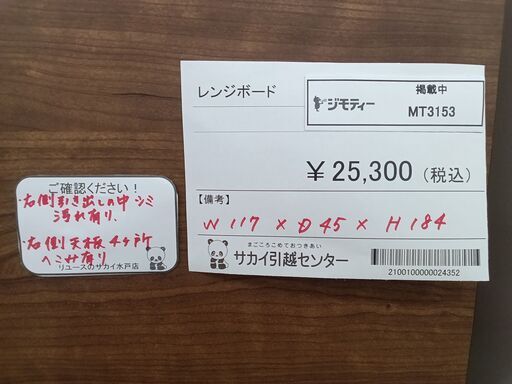 ご確認ください!
・右側引き出しの中 シミ
汚れ有り、
・右側天板4ヶ所
ヘコミ有り
リユースのサカイ水戸店
レンジボード
ジモティー
掲載中
MT3153
¥25,300(税込)
【備考】
W 117 × D 45 × H 184
まごころこめておつきあい
サカイ引越センター
2100100000024352